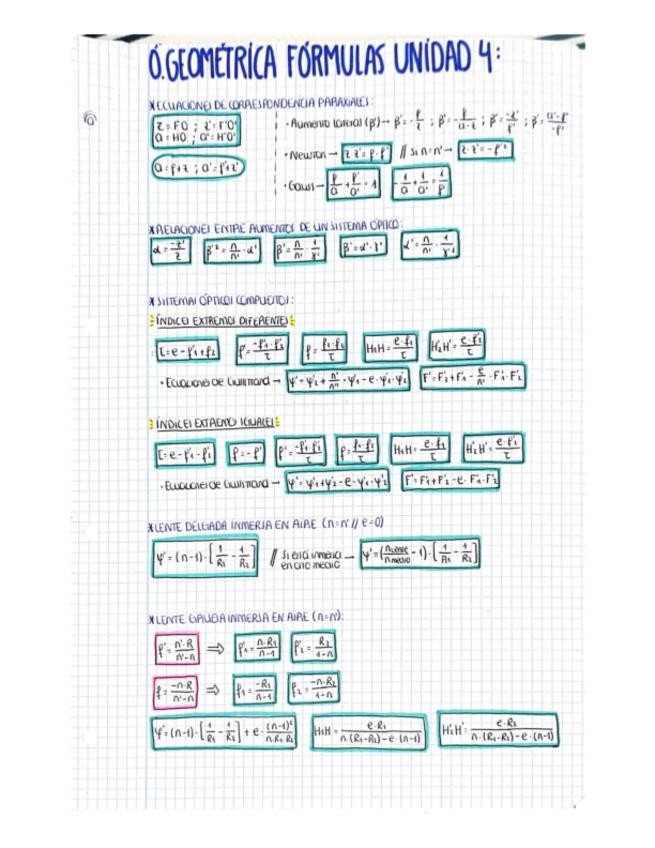 Ó.GEOMÉTRICA FÓRMULAS UNIDAD 4:
* ECUACIONES DE CORRESPONDENCIA PARAXIALES:
z = FO ; z' = F'O'
a = HO ; a' = H'O'
a = f+z ; a' = f'+z'
· Aumento lateral (β') → β' = -f/z ; β' = -f/(a-z) ; β' = -z'/f' ; β' = (a'-f')/-f'
· Newton → z·z' = f·f' // Si n=n' → z·z' = -f'²
· Gauss → f/a + f'/a' = 1 -1/a + 1/a' = 1/f'
* RELACIONES ENTRE AUMENTOS DE UN SISTEMA ÓPTICO:
α' = -z'/z β'² = n/n' · α' β' = n/n' · 1/γ' β' = α'·γ' α' = n/n' · 1/γ'²
* SISTEMAS ÓPTICOS COMPUESTOS:
ÍNDICES EXTREMOS DIFERENTES
τ = e - f'1 + f2 f' = -f'1·f'2/τ f = f1·f2/τ H1H = e·f1/τ H'2H' = e·f'2/τ
· Ecuaciones de Gullstrand → φ' = φ'2 + n'/n'' · φ'1 - e·φ'1·φ'2 F' = F'2 + F'1 - e/n' · F'1·F'2
ÍNDICES EXTREMOS IGUALES
τ = e - f'1 - f'2 f = -f' f' = -f'1·f'2/τ f = f1·f2/τ H1H = e·f1/τ H'2H' = e·f'2/τ
· Ecuaciones de Gullstrand → φ' = φ'1 + φ'2 - e·φ'1·φ'2 F' = F'1 + F'2 - e·F'1·F'2
* LENTE DELGADA INMERSA EN AIRE (n=n' // e=0)
φ' = (n-1)·[1/R1 - 1/R2] // Si está inmersa en otro medio → φ' = (n lente/n medio - 1)·[1/R1 - 1/R2]
* LENTE GRUESA INMERSA EN AIRE (n=n'):
f' = n'·R/(n'-n) ⇒ f'1 = n·R1/(n-1) f'2 = R2/(1-n)
f = -n·R/(n'-n) ⇒ f1 = -R1/(n-1) f2 = -n·R2/(1-n)
φ' = (n-1)·[1/R1 - 1/R2] + e·(n-1)²/(n·R1·R2) H1H = e·R1/(n·(R1-R2)-e·(n-1)) H'2H' = e·R2/(n·(R1-R2)-e·(n-1))